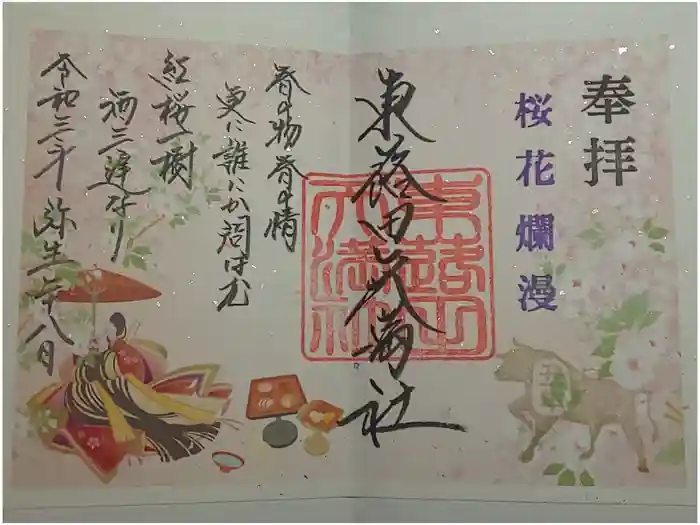 奉拝
桜花爛漫
東蕗田天満社
東蕗田
天満社
春の物春の情
更に誰にか問はむ
紅桜一樹
酒三遅なり
令和三年 弥生廿八日